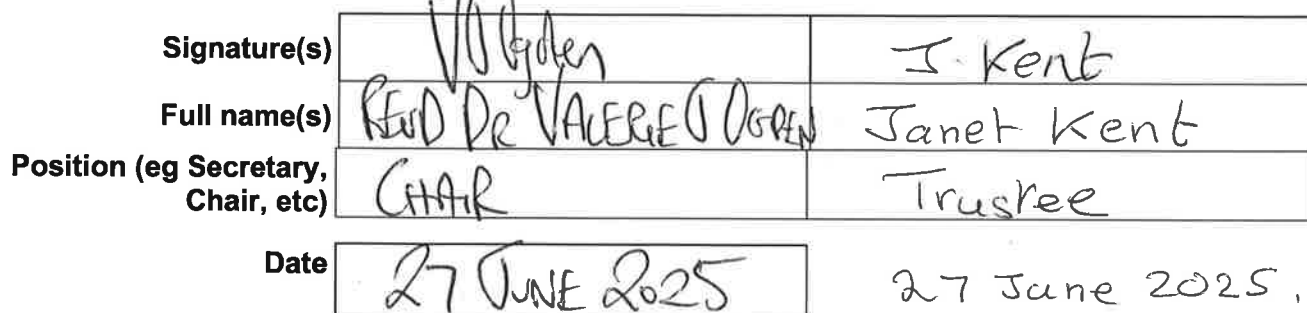 Signature(s) VJ Ogden J. Kent
Full name(s) REVD DR VALERIE J OGDEN Janet Kent
Position (eg Secretary,
Chair, etc) CHAIR Trustee
Date 27 JUNE 2025 27 June 2025.